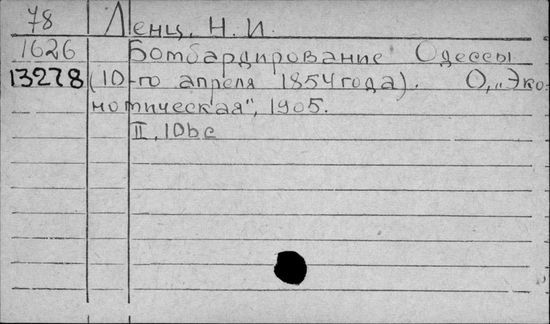 78 Ленц, Н. И.
1626 Бомбардирование Одессы
13278 (10-го апреля 1854 года). О, „Эко-
номическая", 1905.
II, 10bc